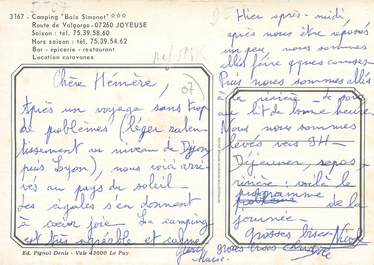 3167 - Camping "Bois Simonet" ***
Route de Valgorge - 07260 JOYEUSE
Saison : tél. 75.39.58.60
Hors saison : tél. 75.39.54.62
Bar - épicerie - restaurant
Location caravanes
07
Chère Mémère,
Après un voyage sans trop
de problèmes (léger ralen-
tissement au niveau de Dijon
puis Lyon), nous voilà arri-
vés au pays du soleil -
Les cigales s'en donnent
à cœur joie. Le camping
est très agréable et calme
Ed. Pignol Denis - Vals 43000 Le Puy
Hier après-midi,
après nous être reposés
un peu, nous sommes
allés faire quelques courses
Puis nous sommes allés
à la rivière - le soir
au lit de bonne heure.
Nous nous sommes
levés vers 9H -
Déjeuner, repos
rivière voilà le
programme
de la
journée -
grosses bises Nicole
grosses bises